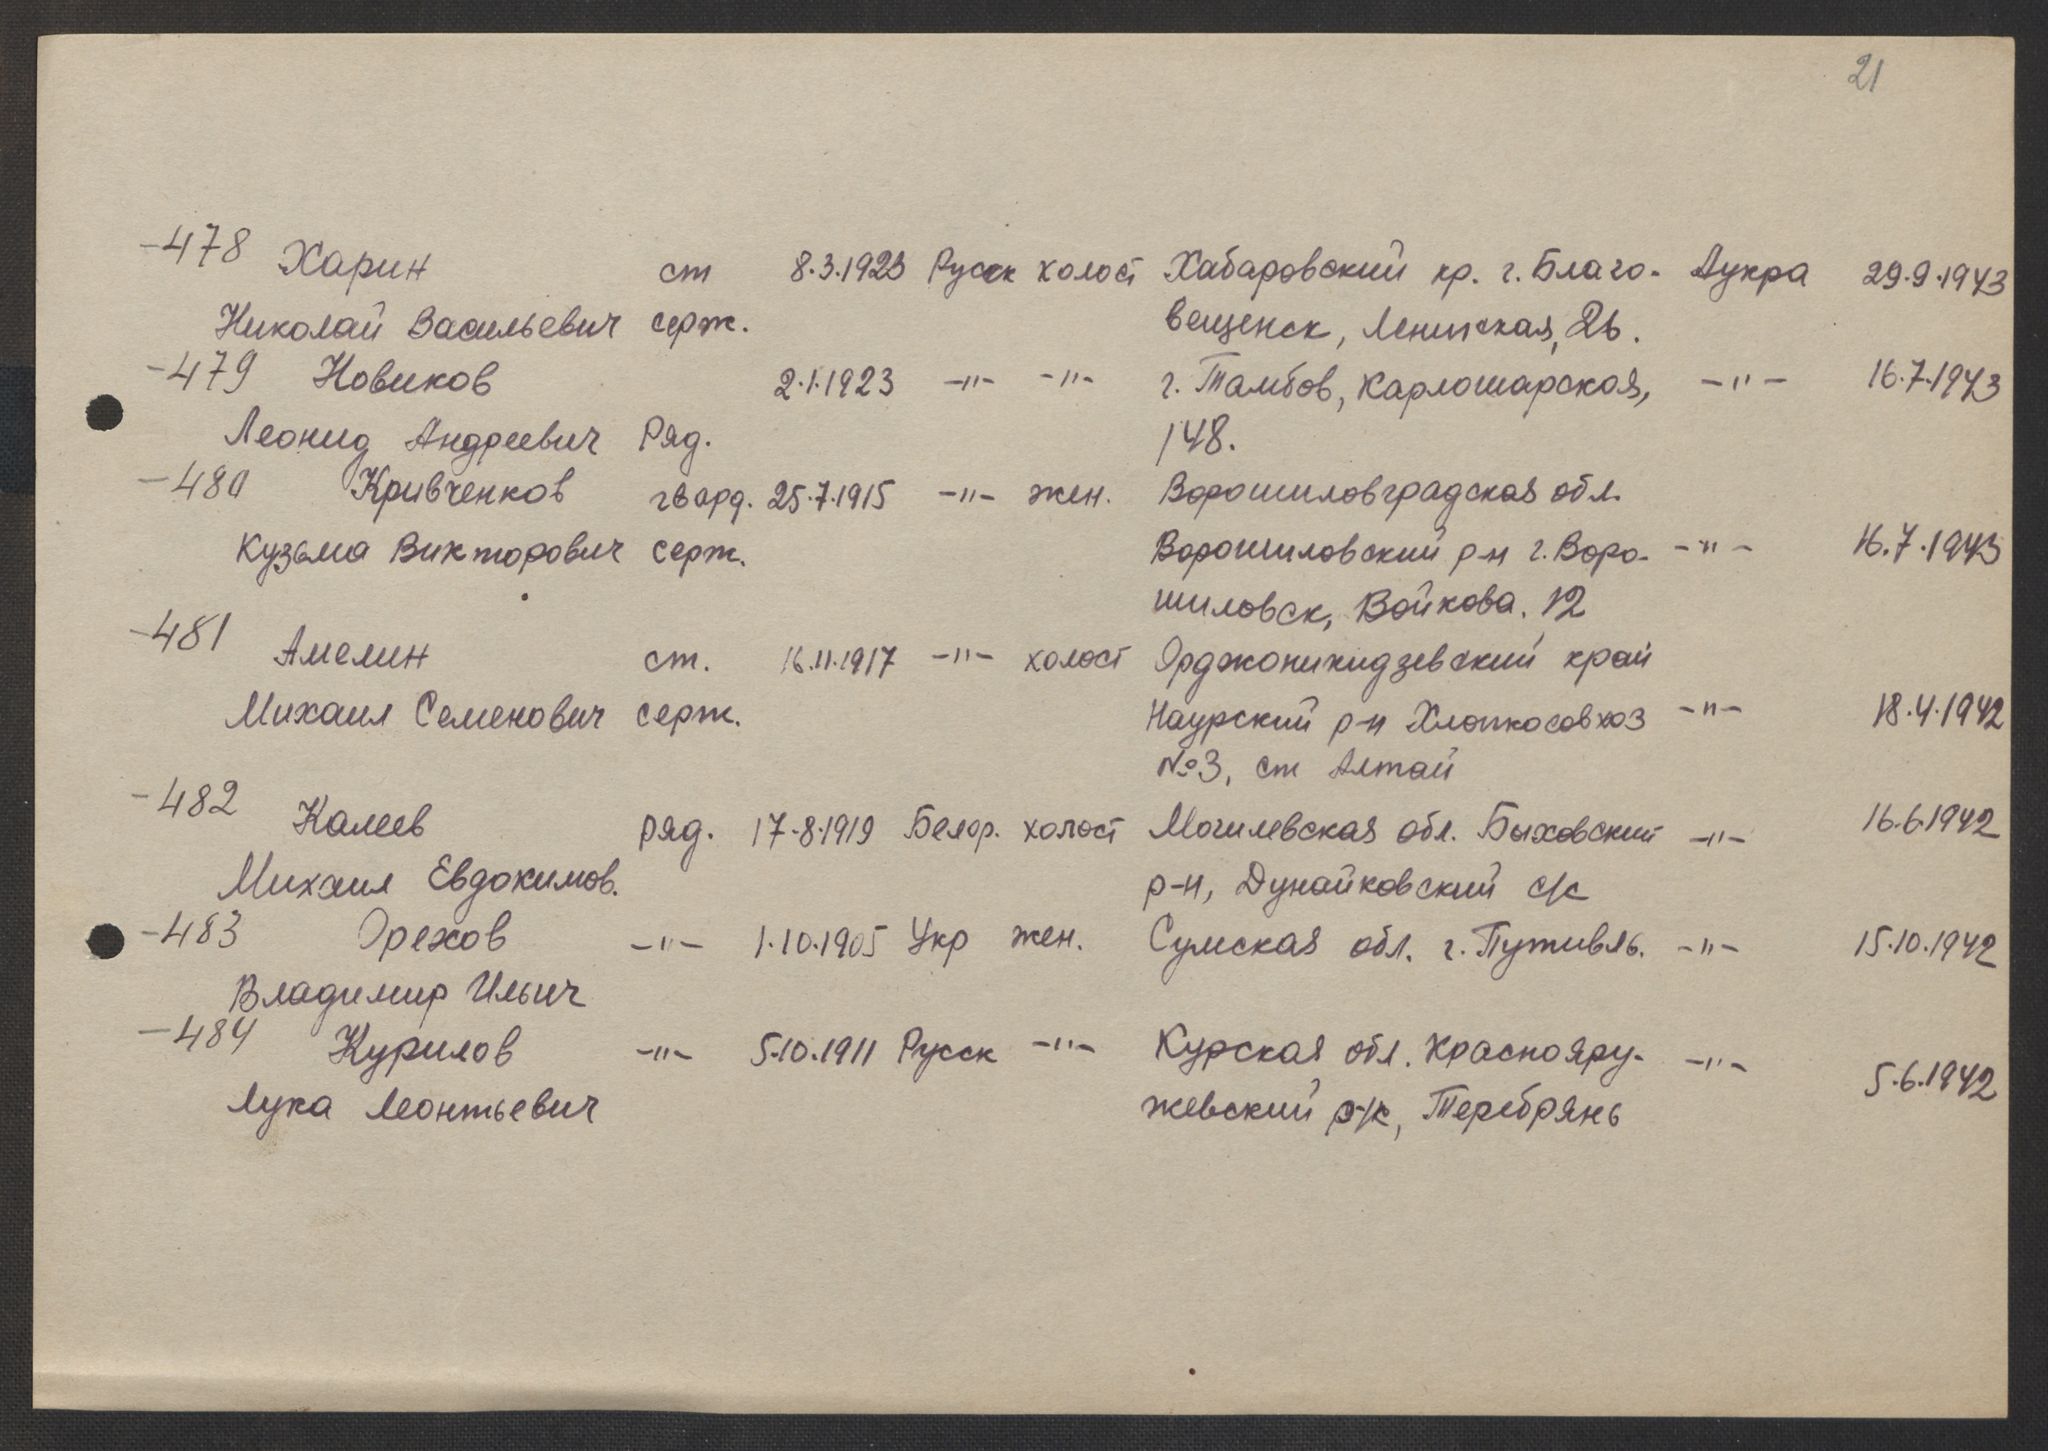 21
-478 Харин ст 8.3.1923 Русск холост Хабаровский кр. г. Благо- Лукра 29.9.1943
Николай Васильевич серж. вещенск, Ленинская, 26.
-479 Новиков 2.1.1923 -"- -"- г. Тамбов, Карломарская, -"- 16.7.1943
Леонид Андреевич Ряд. 148.
-480 Кривченков гвард. 25.7.1915 -"- жен. Ворошиловградская обл.
Кузьма Викторович серж. Ворошиловский р-н г. Воро- -"- 16.7.1943
шиловск, Войкова. 12
-481 Амелин ст. 16.11.1917 -"- холост Орджоникидзевский край
Михаил Семенович серж. Наурский р-н Хлопкосовхоз -"- 18.4.1942
№3, ст Алтай
-482 Калеев ряд. 17.8.1919 Белор. холост Могилевская обл. Быховский -"- 16.6.1942
Михаил Евдокимов. р-н, Дунайковский с/с
-483 Орехов -"- 1.10.1905 Укр жен. Сумская обл. г. Путивль. -"- 15.10.1942
Владимир Ильич
-484 Курилов -"- 5.10.1911 Русск -"- Курская обл. Краснояру- -"- 5.6.1942
Лука Леонтьевич жевский Теребрянь